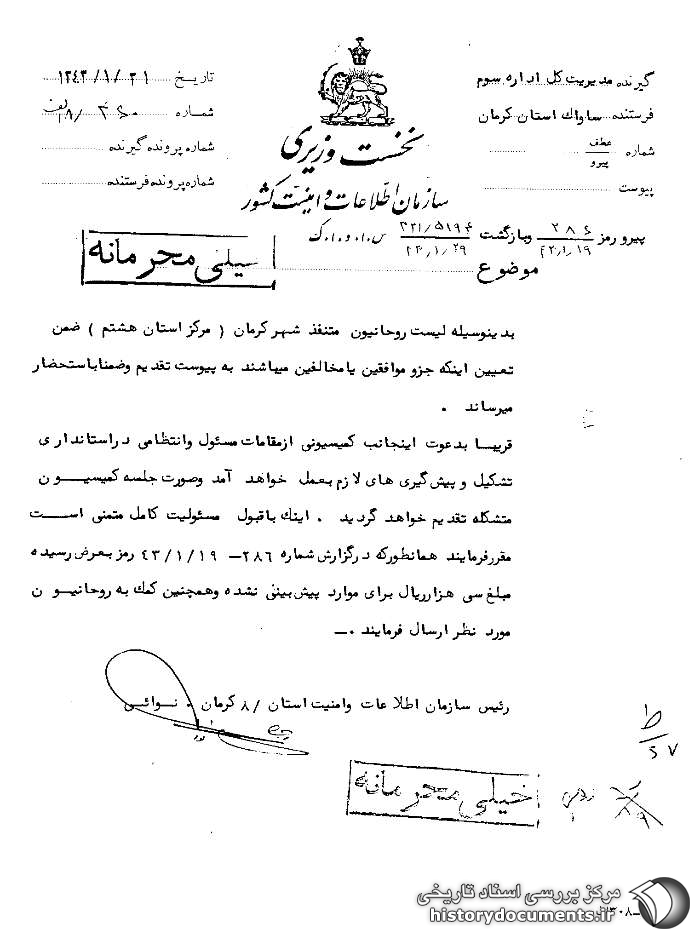 گیرنده مدیریت کل اداره سوم
فرستنده ساواک استان کرمان
شماره عطف پیرو
پیوست
نخست وزیری
سازمان اطلاعات و امنیت کشور
تاریخ ۱۳۴۳/۱/۳۱
شماره
شماره پرونده گیرنده
شماره پرونده فرستنده
پیرو رمز ۲۸۶ / ۴۳/۱/۱۹ وبازگشت ۳۲۱/۵۱۹۴ / ۴۳/۱/۲۹
موضوع
خیلی محرمانه
بدینوسیله لیست روحانیون متنفذ شهر کرمان ( مرکز استان هشتم ) ضمن
تعیین اینکه جزو موافقین یا مخالفین میباشند به پیوست تقدیم وضمنا باستحضار
میرساند .
قریبا بدعوت اینجانب کمیسیونی ازمقامات مسئول وانتظامی دراستانداری
تشکیل و پیش گیری های لازم بعمل خواهد آمد وصورت جلسه کمیسیون
متشکله تقدیم خواهد گردید . اینک باقبول مسئولیت کامل متمنی است
مقررفرمایند همانطورکه درگزارش شماره ۲۸۶ – ۴۳/۱/۱۹ رمز بعرض رسیده
مبلغ سی هزارریال برای موارد پیش بینی نشده وهمچنین کمک به روحانیون
مورد نظر ارسال فرمایند .–
رئیس سازمان اطلاعات وامنیت استان /۸ کرمان . نوائی
خیلی محرمانه
مرکز بررسی اسناد تاریخی
historydocuments.ir